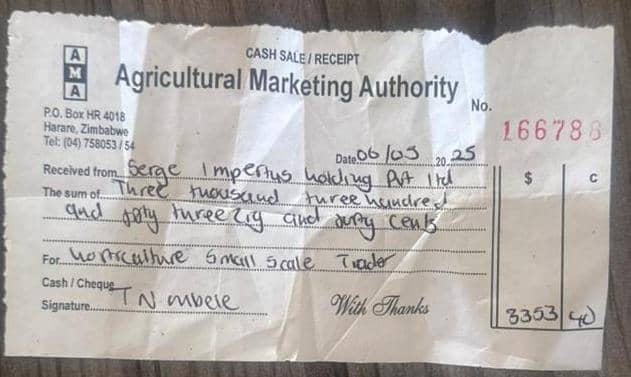 A
M
A
CASH SALE / RECEIPT
Agricultural Marketing Authority
P.O. Box HR 4018
Harare, Zimbabwe
Tel: (04) 758053 / 54
No. 166788
Date 06/03 20 25
Received from Serge Impertus holding Pvt ltd
$ c
The sum of Three thousand three hundred
and three zig and cents
For Horticulture Small Scale Trader
Cash / Cheque
Signature T N mbele
With Thanks
3353 40